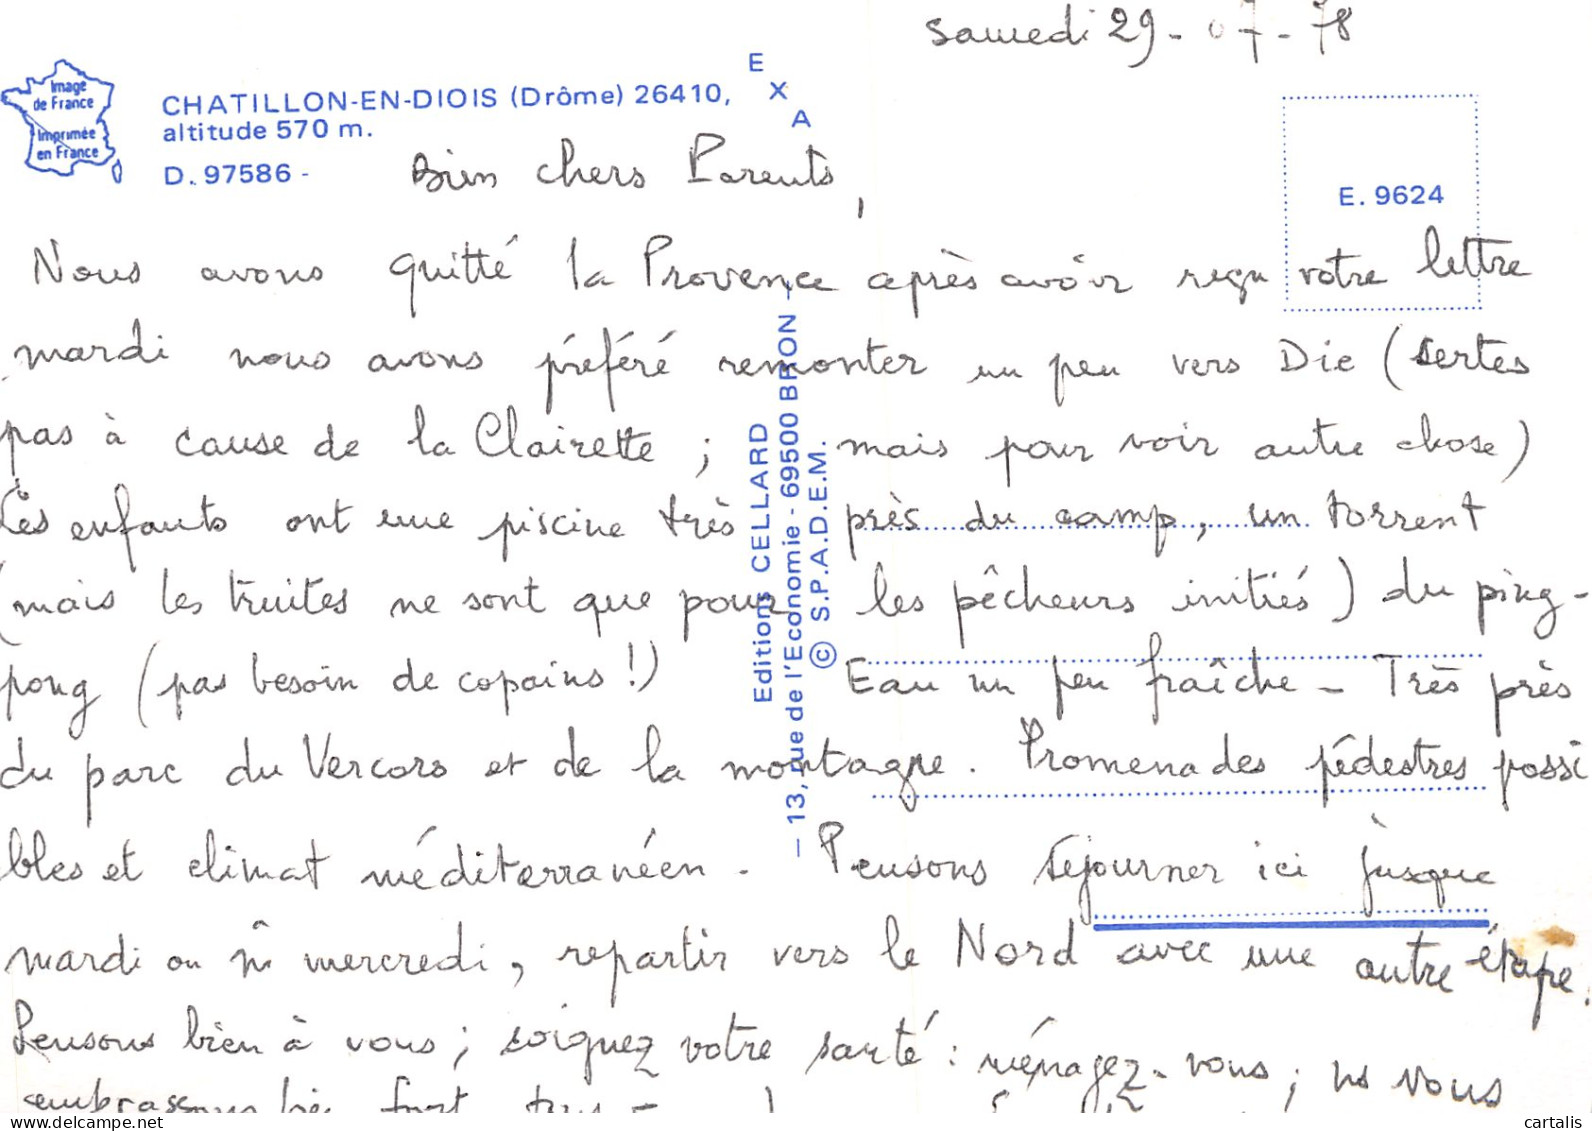 samedi 29-07-78
Image
de France
Imprimée
en France
CHATILLON-EN-DIOIS (Drôme) 26410,
altitude 570 m.
D. 97586 -
EXA
E. 9624
Bien chers Parents,
Nous avons quitté la Provence après avoir reçu votre lettre
mardi nous avons préféré remonter un peu vers Die (certes
pas à cause de la Clairette ; mais pour voir autre chose)
Les enfants ont une piscine très près du camp, un torrent
(mais les truites ne sont que pour les pêcheurs initiés) du ping-
pong (pas besoin de copains !) Eau un peu fraîche - Très près
du parc du Vercors et de la montagne. Promenades pédestres possi
bles et climat méditerranéen. Pensons séjourner ici jusque
mardi ou mercredi, repartir vers le Nord avec une autre étape.
Pensons bien à vous ; soignez votre santé : ménagez-vous ; ns vous
embrassons bien fort tous
Editions CELLARD
— 13, rue de l'Economie - 69500 BRON —
© S.P.A.D.E.M.
delcampe.net
cartalis